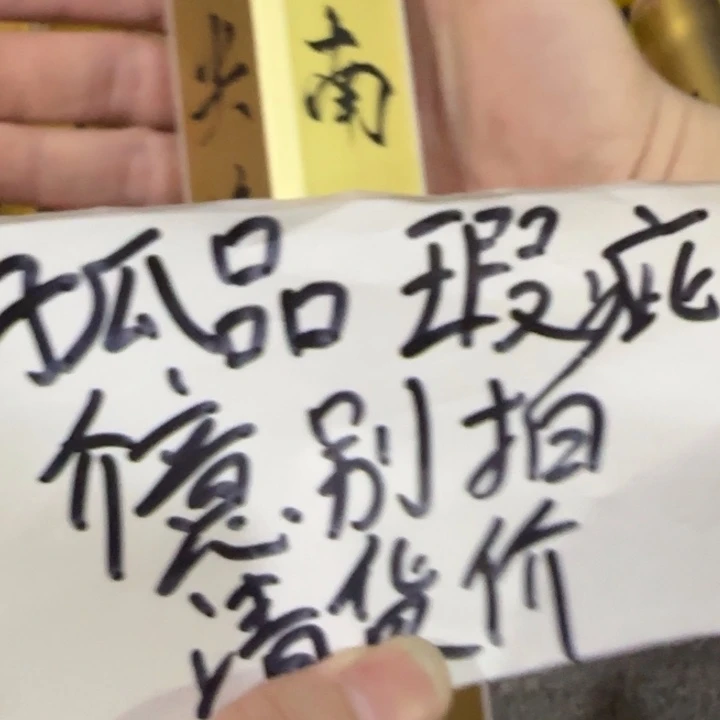 南
孤品 瑕疵
介意.别拍
清货价